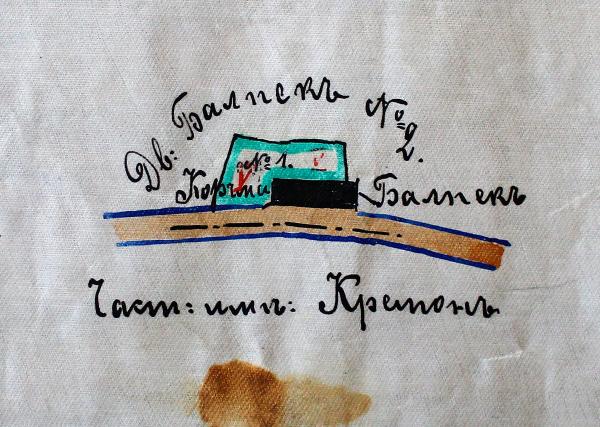 Дв: Балпскъ № 2.
№ 1.
Корчма Балпскъ
Част: имп: Кремонъ